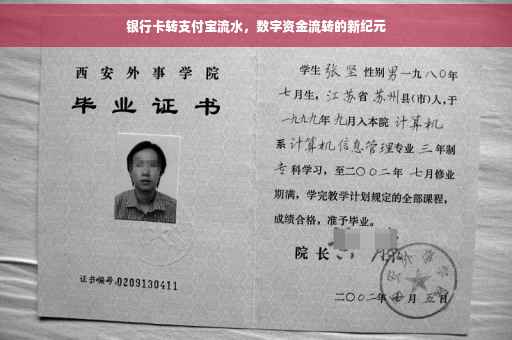 银行卡转支付宝流水，数字资金流转的新纪元
西安外事学院
毕业证书
证书编号:0209130411
学生 张坚 性别男一九八0年
七月生，江苏省苏州县(市)人,于
一九九九年九月入本院 计算机
系计算机信息管理专业 三 年制
专科学习，至二〇〇二年 七月修业
期满，学完教学计划规定的全部课程，
成绩合格，准予毕业。
院长
二〇〇二年 月五日